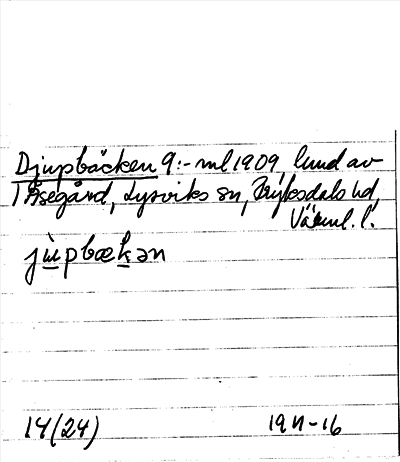 Djupbäcken 9:- ml 1909, lund av
Åsegård, Lysviks sn, Fryksdals hd,
Värml. l.
jùpbækən
14(24) 1911-16